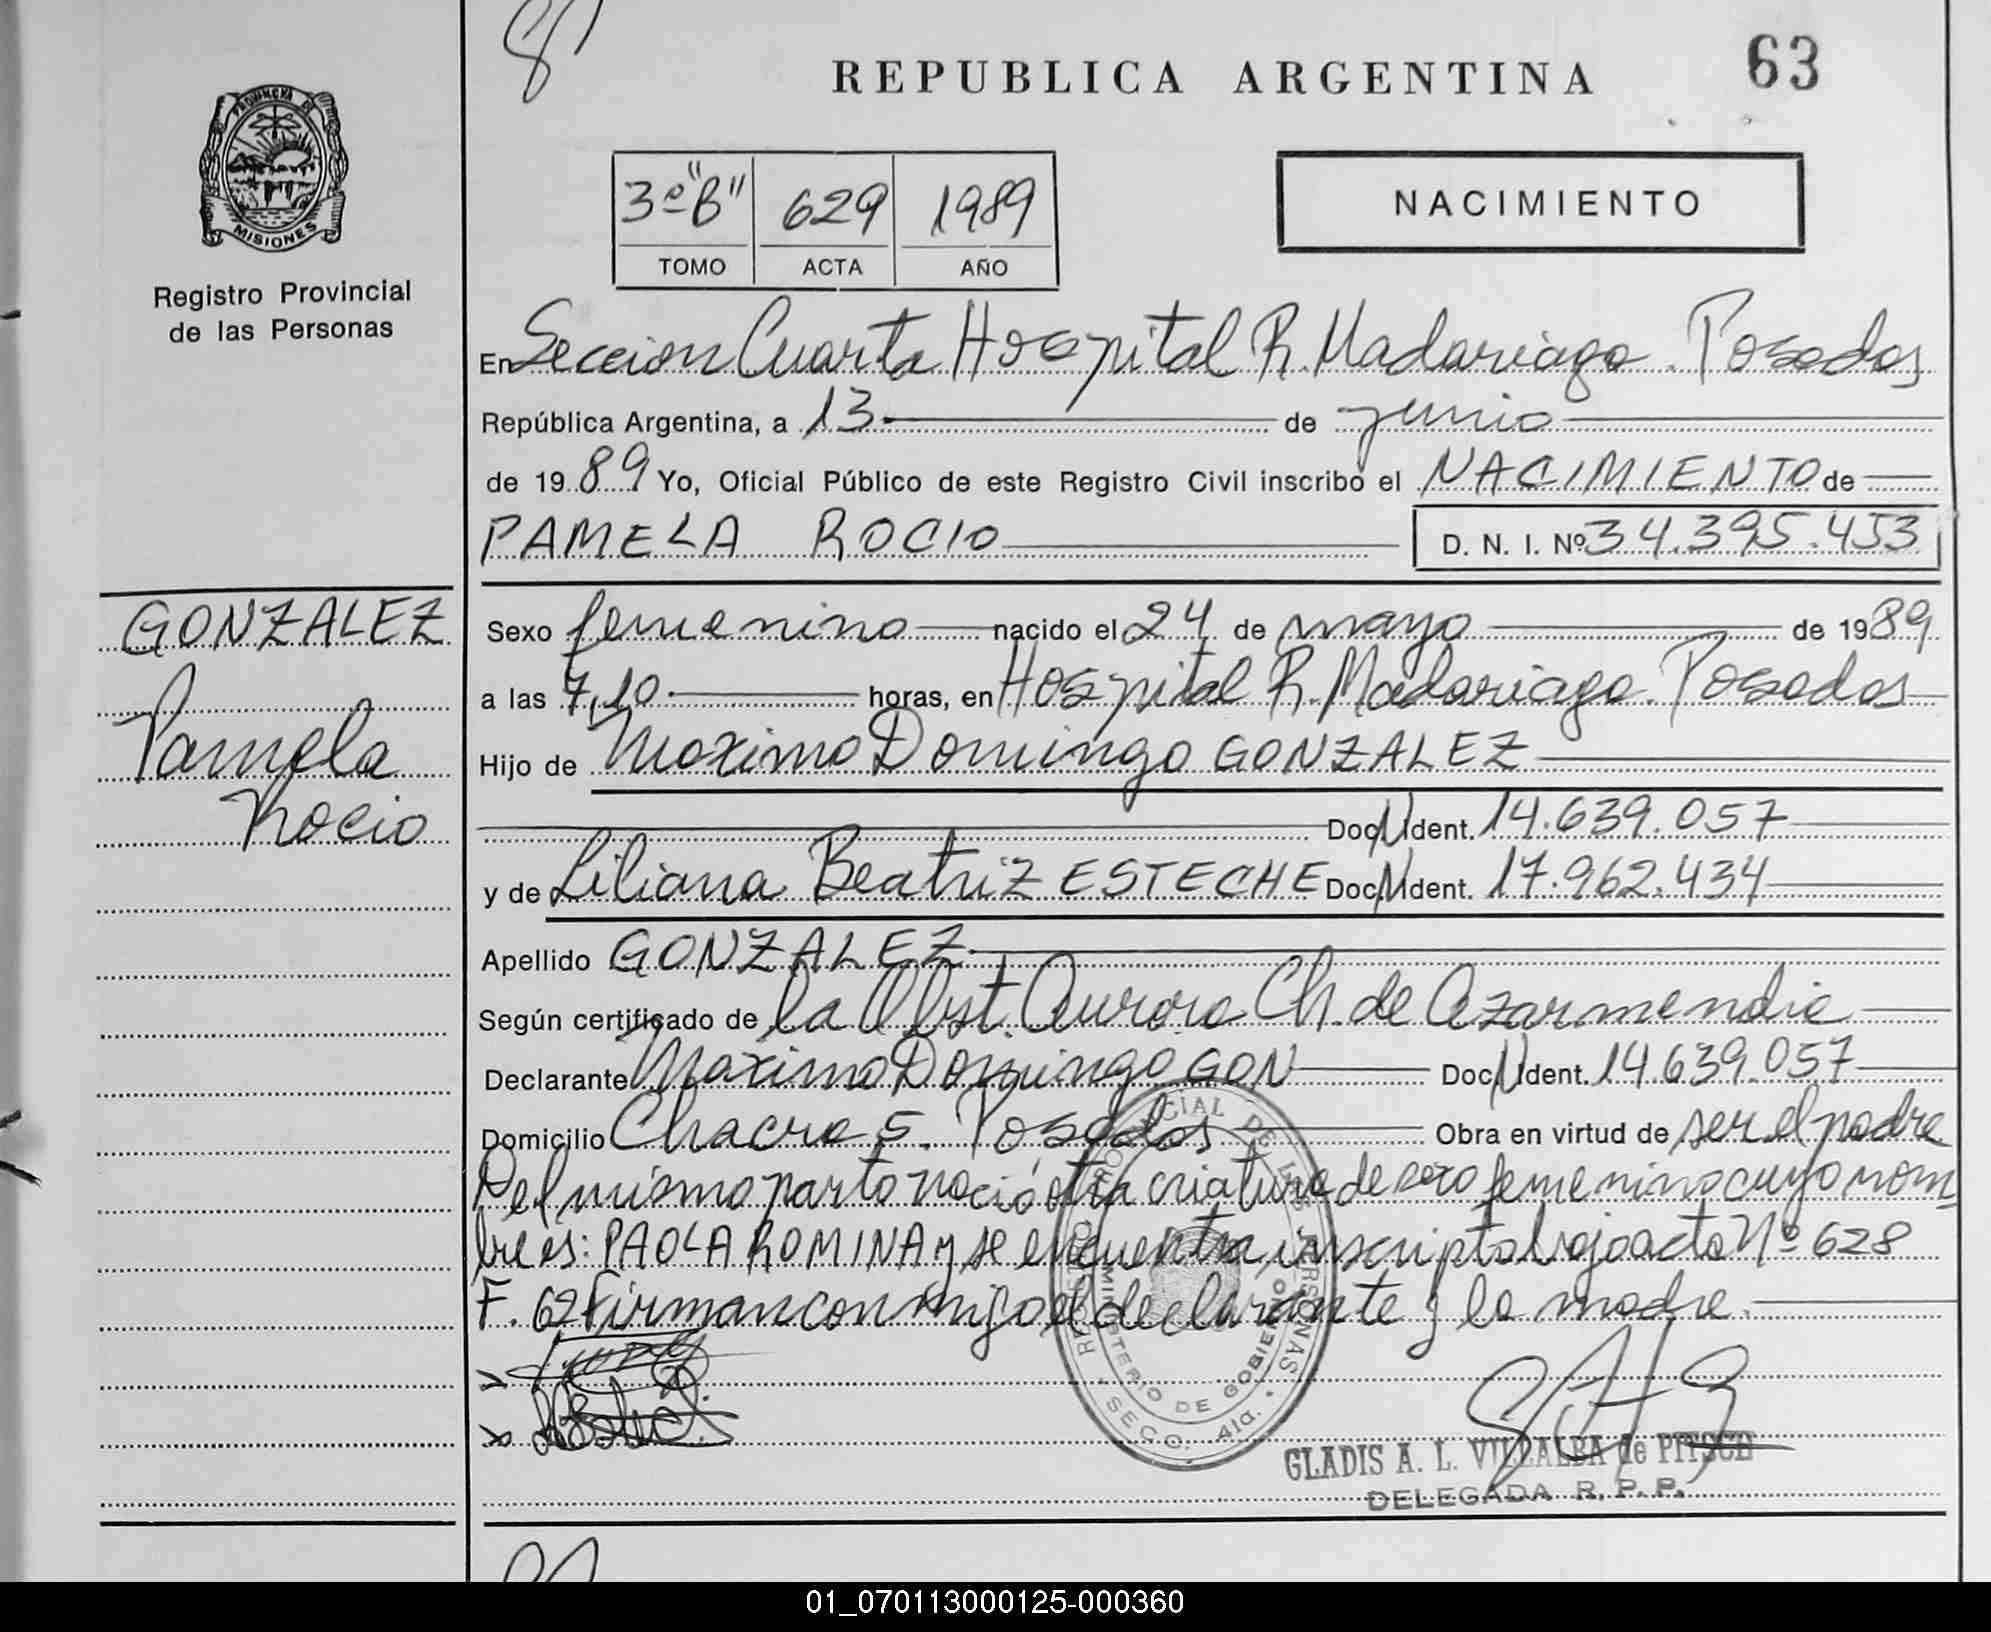 REPUBLICA ARGENTINA
63
PROVINCIA DE
MISIONES
Registro Provincial
de las Personas
3º "B" 629 1989
TOMO ACTA AÑO
NACIMIENTO
En Seccion Cuarta Hospital R. Madariaga. Posadas
República Argentina, a 13 de junio
de 1989 Yo, Oficial Público de este Registro Civil inscribo el NACIMIENTO de
PAMELA ROCIO D. N. I. Nº 34.395.453
GONZALEZ
Pamela
Rocio
Sexo femenino nacido el 24 de mayo de 1989
a las 7,10 horas, en Hospital R. Madariaga. Posadas
Hijo de Maximo Domingo GONZALEZ
Doc. Ident. 14.639.057
y de Liliana Beatriz ESTECHE Doc. Ident. 17.962.434
Apellido GONZALEZ
Según certificado de la Obst. Aurora Ch. de Azarmendia
Declarante Maximo Domingo GON Doc. Ident. 14.639.057
Domicilio Chacra 5. Posadas Obra en virtud de ser el padre
Del mismo parto nació otra criatura de sexo femenino cuyo nom
bre es: PAOLA ROMINA y se encuentra inscripta bajo acta Nº 628
F. 62 Firman conmigo el declarante y la madre.
REGISTRO PROVINCIAL DE LAS PERSONAS
MINISTERIO DE GOBIERNO
SECC. 4ta.
GLADIS A. L. VILLALBA de PITSCH
DELEGADA R. P. P.
01_070113000125-000360